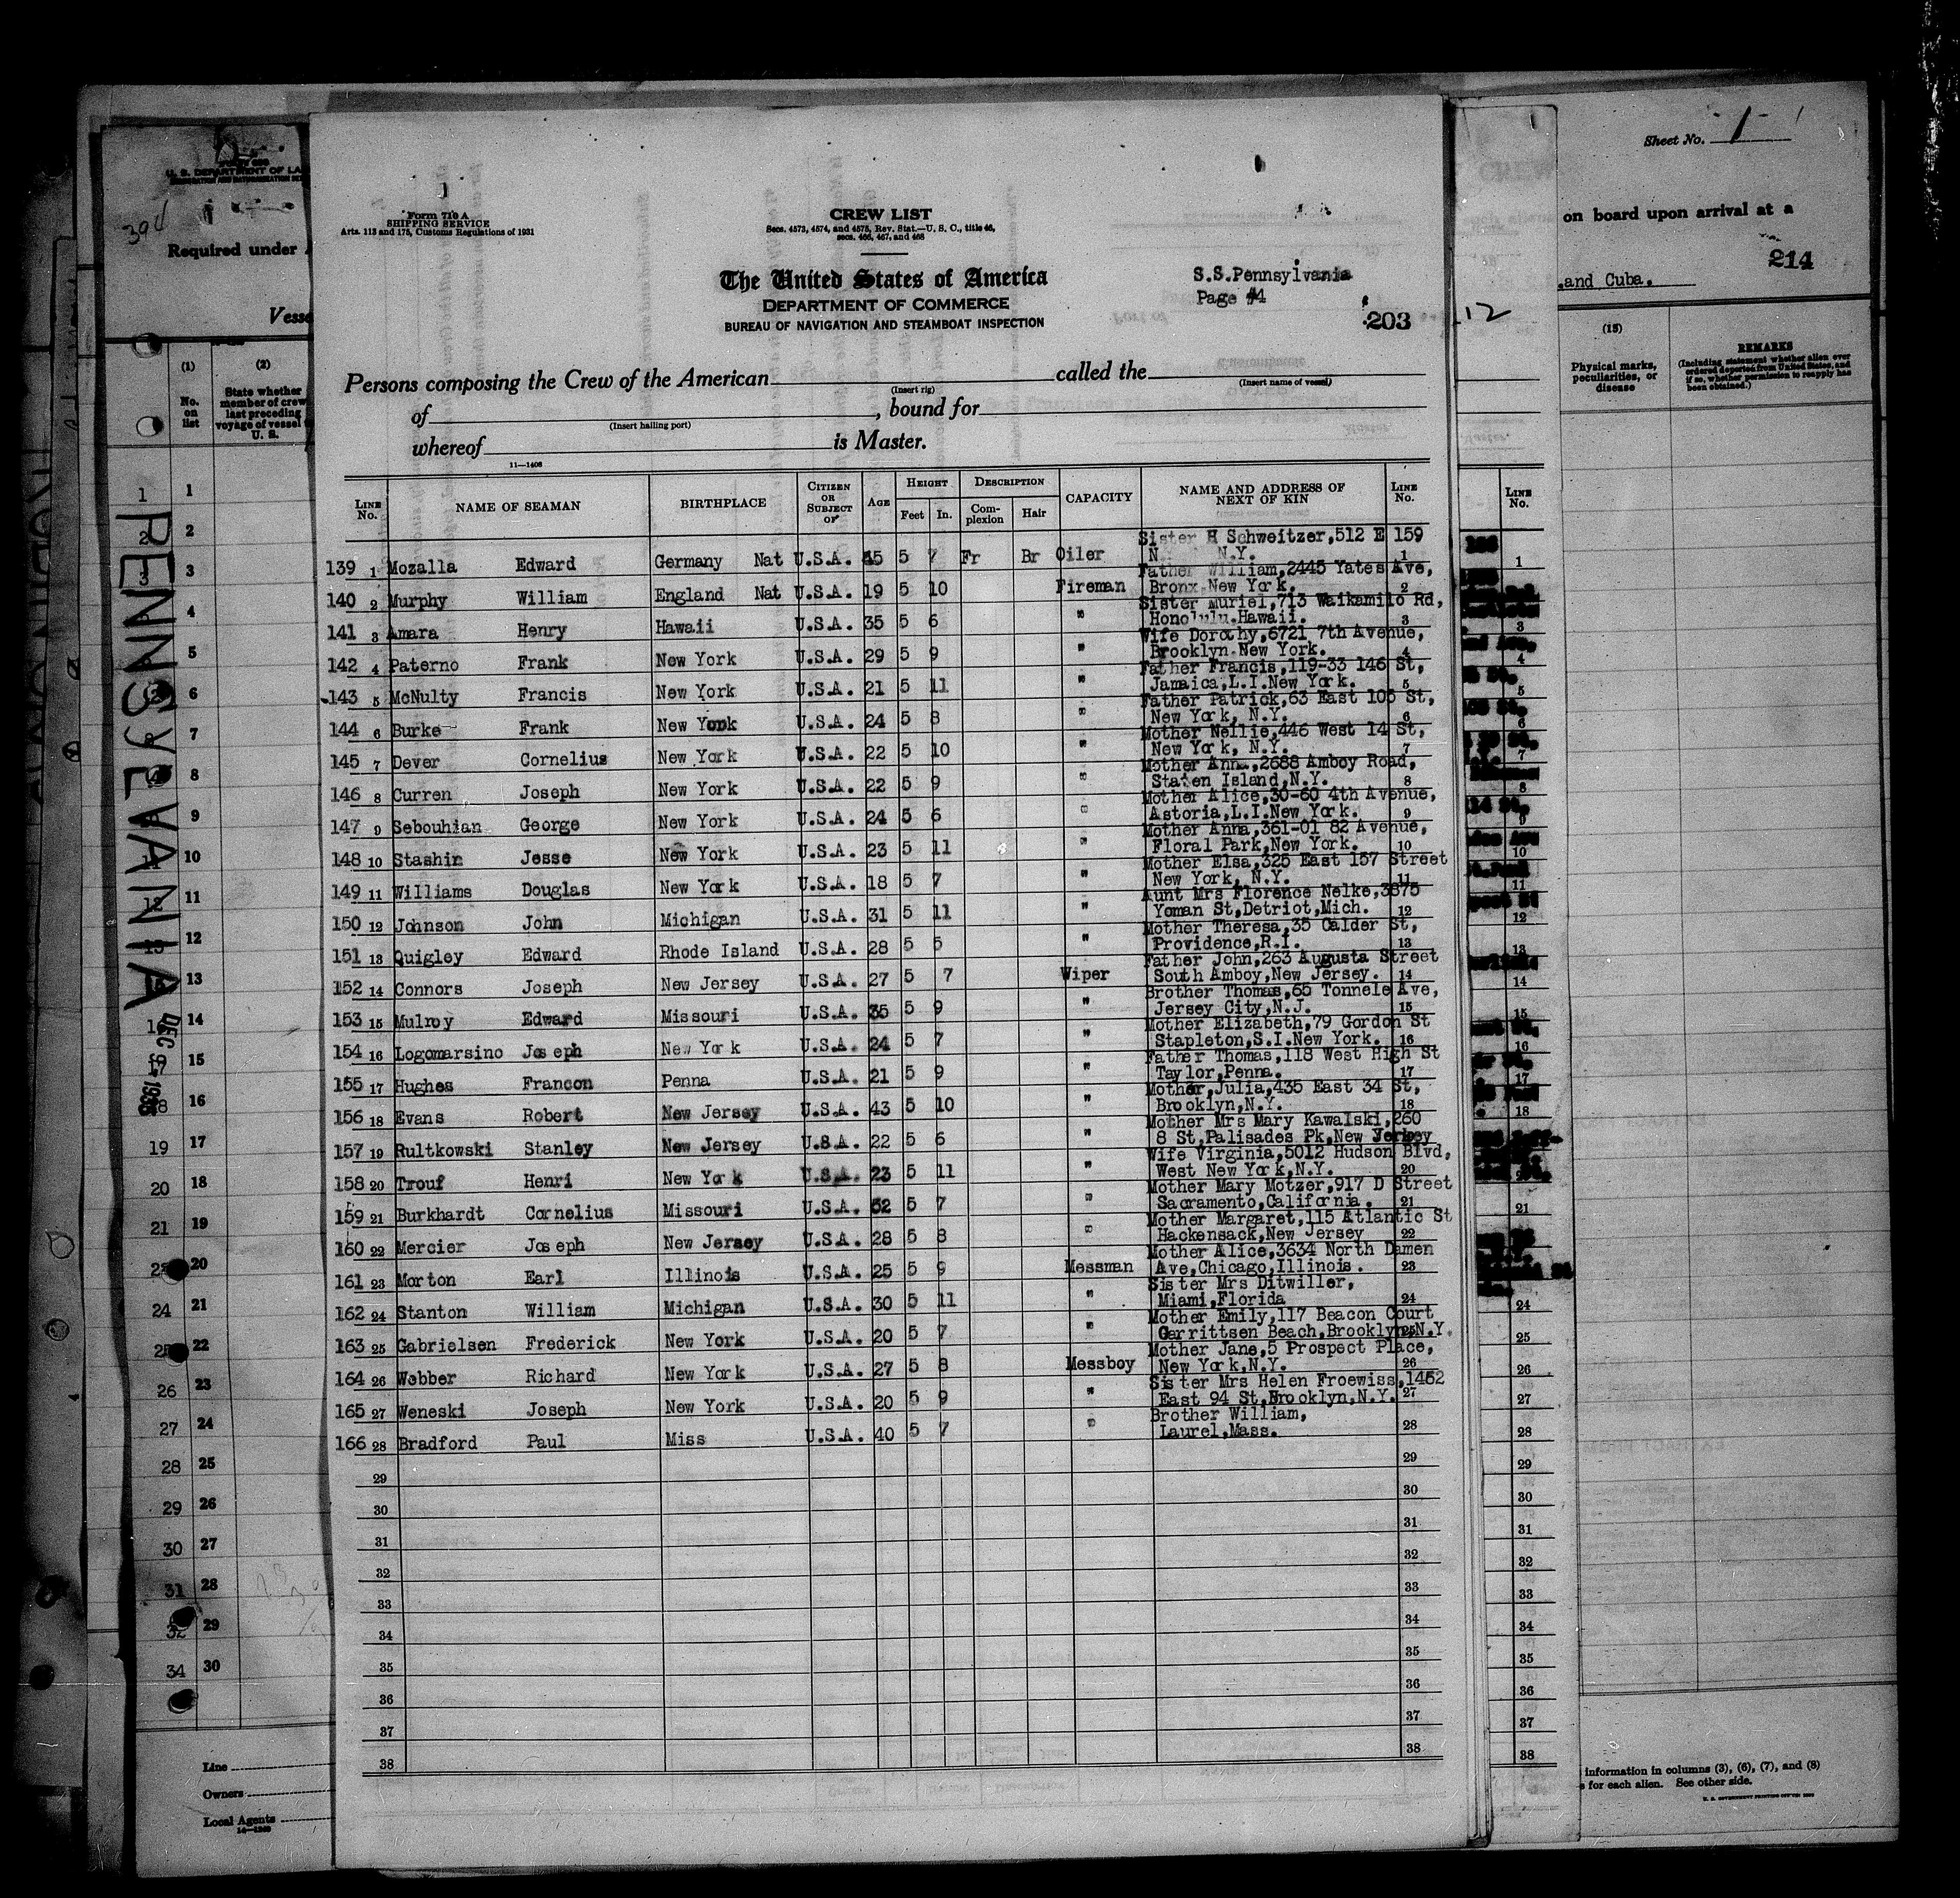 Form 710 A
SHIPPING SERVICE
Arts. 113 and 175, Customs Regulations of 1931
CREW LIST
Secs. 4573, 4574, and 4575, Rev. Stat.—U. S. C., title 46,
secs. 466, 467, and 468
The United States of America
DEPARTMENT OF COMMERCE
BUREAU OF NAVIGATION AND STEAMBOAT INSPECTION
S.S.Pennsylvania
Page #4
203
Persons composing the Crew of the American called the
(Insert rig) (Insert name of vessel)
of , bound for
(Insert hailing port)
whereof is Master.
11—1408
LINE No. NAME OF SEAMAN BIRTHPLACE CITIZEN OR SUBJECT OF AGE HEIGHT Feet In. DESCRIPTION Complexion Hair CAPACITY NAME AND ADDRESS OF NEXT OF KIN LINE No.
Sister H Schweitzer,512 E 159
139 1 Mozalla Edward Germany Nat U.S.A. 45 5 7 Fr Br Oiler N. N.Y. 1
Father William,2445 Yates Ave,
140 2 Murphy William England Nat U.S.A. 19 5 10 Fireman Bronx New York. 2
Sister Muriel,713 Waikamilo Rd,
141 3 Amara Henry Hawaii U.S.A. 35 5 6 " Honolulu.Hawaii. 3
Wife Dorothy,6721 7th Avenue,
142 4 Paterno Frank New York U.S.A. 29 5 9 " Brooklyn New York. 4
Father Francis,119-33 146 St,
143 5 McNulty Francis New York U.S.A. 21 5 11 " Jamaica,L.I.New York. 5
Father Patrick,63 East 105 St,
144 6 Burke Frank New York U.S.A. 24 5 8 " New York, N.Y. 6
Mother Nellie,446 West 14 St,
145 7 Dever Cornelius New York U.S.A. 22 5 10 " New York, N.Y. 7
Mother Anna,2688 Amboy Road,
146 8 Curren Joseph New York U.S.A. 22 5 9 " Staten Island,N.Y. 8
Mother Alice,30-60 4th Avenue,
147 9 Sebouhian George New York U.S.A. 24 5 6 " Astoria,L.I.New York. 9
Mother Anna,361-01 82 Avenue,
148 10 Stashin Jesse New York U.S.A. 23 5 11 " Floral Park,New York. 10
Mother Elsa,325 East 157 Street
149 11 Williams Douglas New York U.S.A. 18 5 7 " New York, N.Y. 11
Aunt Mrs Florence Nelke,3875
150 12 Johnson John Michigan U.S.A. 31 5 11 " Yoman St,Detriot,Mich. 12
Mother Theresa,35 Calder St,
151 13 Quigley Edward Rhode Island U.S.A. 28 5 5 " Providence,R.I. 13
Father John,263 Augusta Street
152 14 Connors Joseph New Jersey U.S.A. 27 5 7 Wiper South Amboy,New Jersey. 14
Brother Thomas,65 Tonnele Ave,
153 15 Mulroy Edward Missouri U.S.A. 35 5 9 " Jersey City,N.J. 15
Mother Elizabeth,79 Gordon St
154 16 Logomarsino Joseph New York U.S.A. 24 5 7 " Stapleton,S.I.New York. 16
Father Thomas,118 West High St
155 17 Hughes Francon Penna U.S.A. 21 5 9 " Taylor,Penna. 17
Mother,Julia,435 East 34 St,
156 18 Evans Robert New Jersey U.S.A. 43 5 10 " Brooklyn,N.Y. 18
Mother Mrs Mary Kawalski,260
157 19 Rultkowski Stanley New Jersey U.S.A. 22 5 6 " 8 St,Palisades Pk,New Jersey
Wife Virginia,5012 Hudson Blvd,
158 20 Trouf Henri New York U.S.A. 23 5 11 " West New York,N.Y. 20
Mother Mary Motzer,917 D Street
159 21 Burkhardt Cornelius Missouri U.S.A. 52 5 7 " Sacramento,California. 21
Mother Margaret,115 Atlantic St
160 22 Mercier Joseph New Jersey U.S.A. 28 5 8 " Hackensack,New Jersey 22
Mother Alice,3634 North Damen
161 23 Morton Earl Illinois U.S.A. 25 5 9 Messman Ave,Chicago,Illinois. 23
Sister Mrs Ditwiller,
162 24 Stanton William Michigan U.S.A. 30 5 11 " Miami,Florida 24
Mother Emily,117 Beacon Court
163 25 Gabrielsen Frederick New York U.S.A. 20 5 7 " Gerrittsen Beach,Brooklyn,N.Y. 25
Mother Jane,5 Prospect Place,
164 26 Webber Richard New York U.S.A. 27 5 8 Messboy New York,N.Y. 26
Sister Mrs Helen Froewiss,1452
165 27 Weneski Joseph New York U.S.A. 20 5 9 " East 94 St,Brooklyn,N.Y. 27
Brother William,
166 28 Bradford Paul Miss U.S.A. 40 5 7 " Laurel,Mass. 28
29 29
30 30
31 31
32 32
33 33
34 34
35 35
36 36
37 37
38 38
394
Required under
(1) No. on list
(2) State whether member of crew last preceding voyage of vessel U. S.
PENNSYLVANIA
DEC
Line
Owners
Local Agents
Sheet No. 1
on board upon arrival at a
214
and Cuba.
12
(15) Physical marks, peculiarities, or disease
REMARKS
(Including statement whether alien ever ordered deported from United States, and if so, whether permission to reapply has been obtained.)
LINE No.
information in columns (3), (6), (7), and (8)
for each alien. See other side.